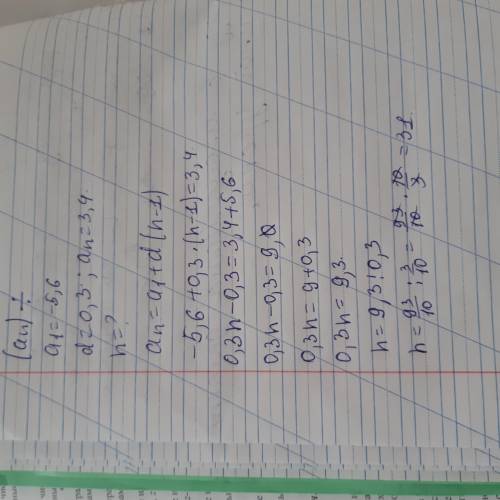 (an) ÷
a1 = -5,6
d = 0,3 ; an = 3,4.
n = ?
an = a1 + d (n-1)
-5,6 + 0,3 · (n-1) = 3,4
0,3n - 0,3 = 3,4 + 5,6
0,3n - 0,3 = 9,0
0,3n = 9 + 0,3
0,3n = 9,3.
n = 9,3 : 0,3
n = 93/10 : 3/10 = 93/10 · 10/3 = 31